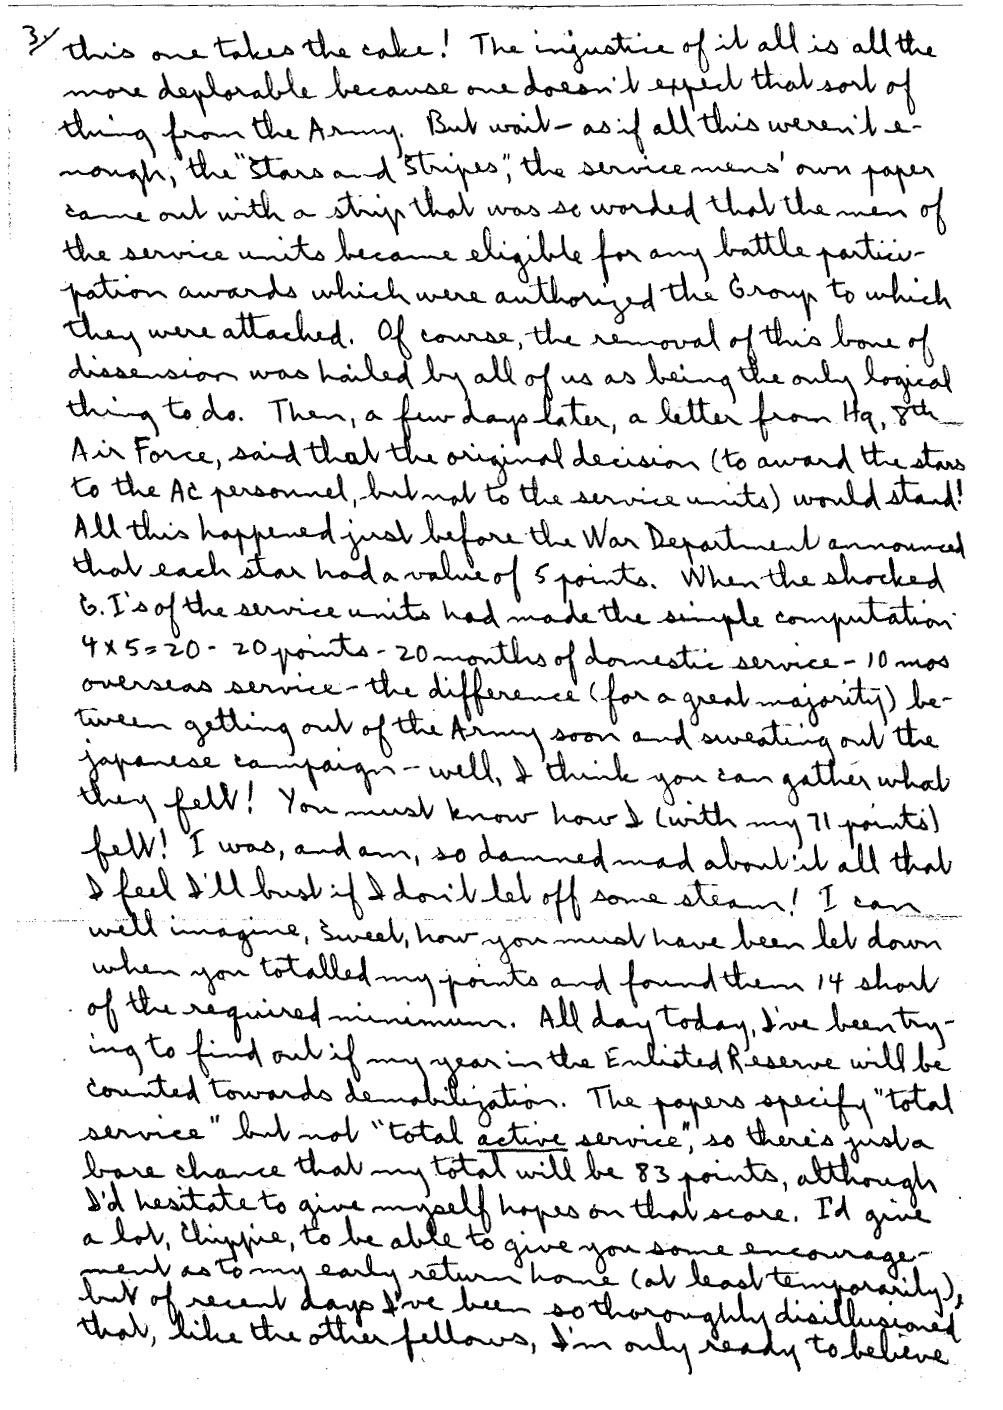 3/
this one takes the cake! The injustice of it all is all the
more deplorable because one doesn't expect that sort of
thing from the Army. But wait – as if all this weren't e-
nough, the "Stars and Stripes", the service mens' own paper
came out with a strip that was so worded that the men of
the service units became eligible for any battle partici-
pation awards which were authorized the Group to which
they were attached. Of course, the removal of this bone of
dissension was hailed by all of us as being the only logical
thing to do. Then, a few days later, a letter from Hq, 8th
Air Force, said that the original decision (to award the stars
to the AC personnel, but not to the service units) would stand!
All this happened just before the War Department announced
that each star had a value of 5 points. When the shocked
G.I's of the service units had made the simple computation
4 x 5 = 20 - 20 points - 20 months of domestic service - 10 mos
overseas service - the difference (for a great majority) be-
tween getting out of the Army soon and sweating out the
japanese campaign - well, I think you can gather what
they felt! You must know how I (with my 71 points)
felt! I was, and am, so damned mad about it all that
I feel I'll bust if I don't let off some steam! I can
well imagine, Sweet, how you must have been let down
when you totalled my points and found them 14 short
of the required minimum. All day today, I've been try-
ing to find out if my year in the Enlisted Reserve will be
counted towards demobilization. The papers specify "total
service" but not "total active service", so there's just a
bare chance that my total will be 83 points, although
I'd hesitate to give myself hopes on that score. I'd give
a lot, Chippie, to be able to give you some encourage-
ment as to my early return home (at least temporarily),
but of recent days I've been so thoroughly disillusioned
that, like the other fellows, I'm only ready to believe